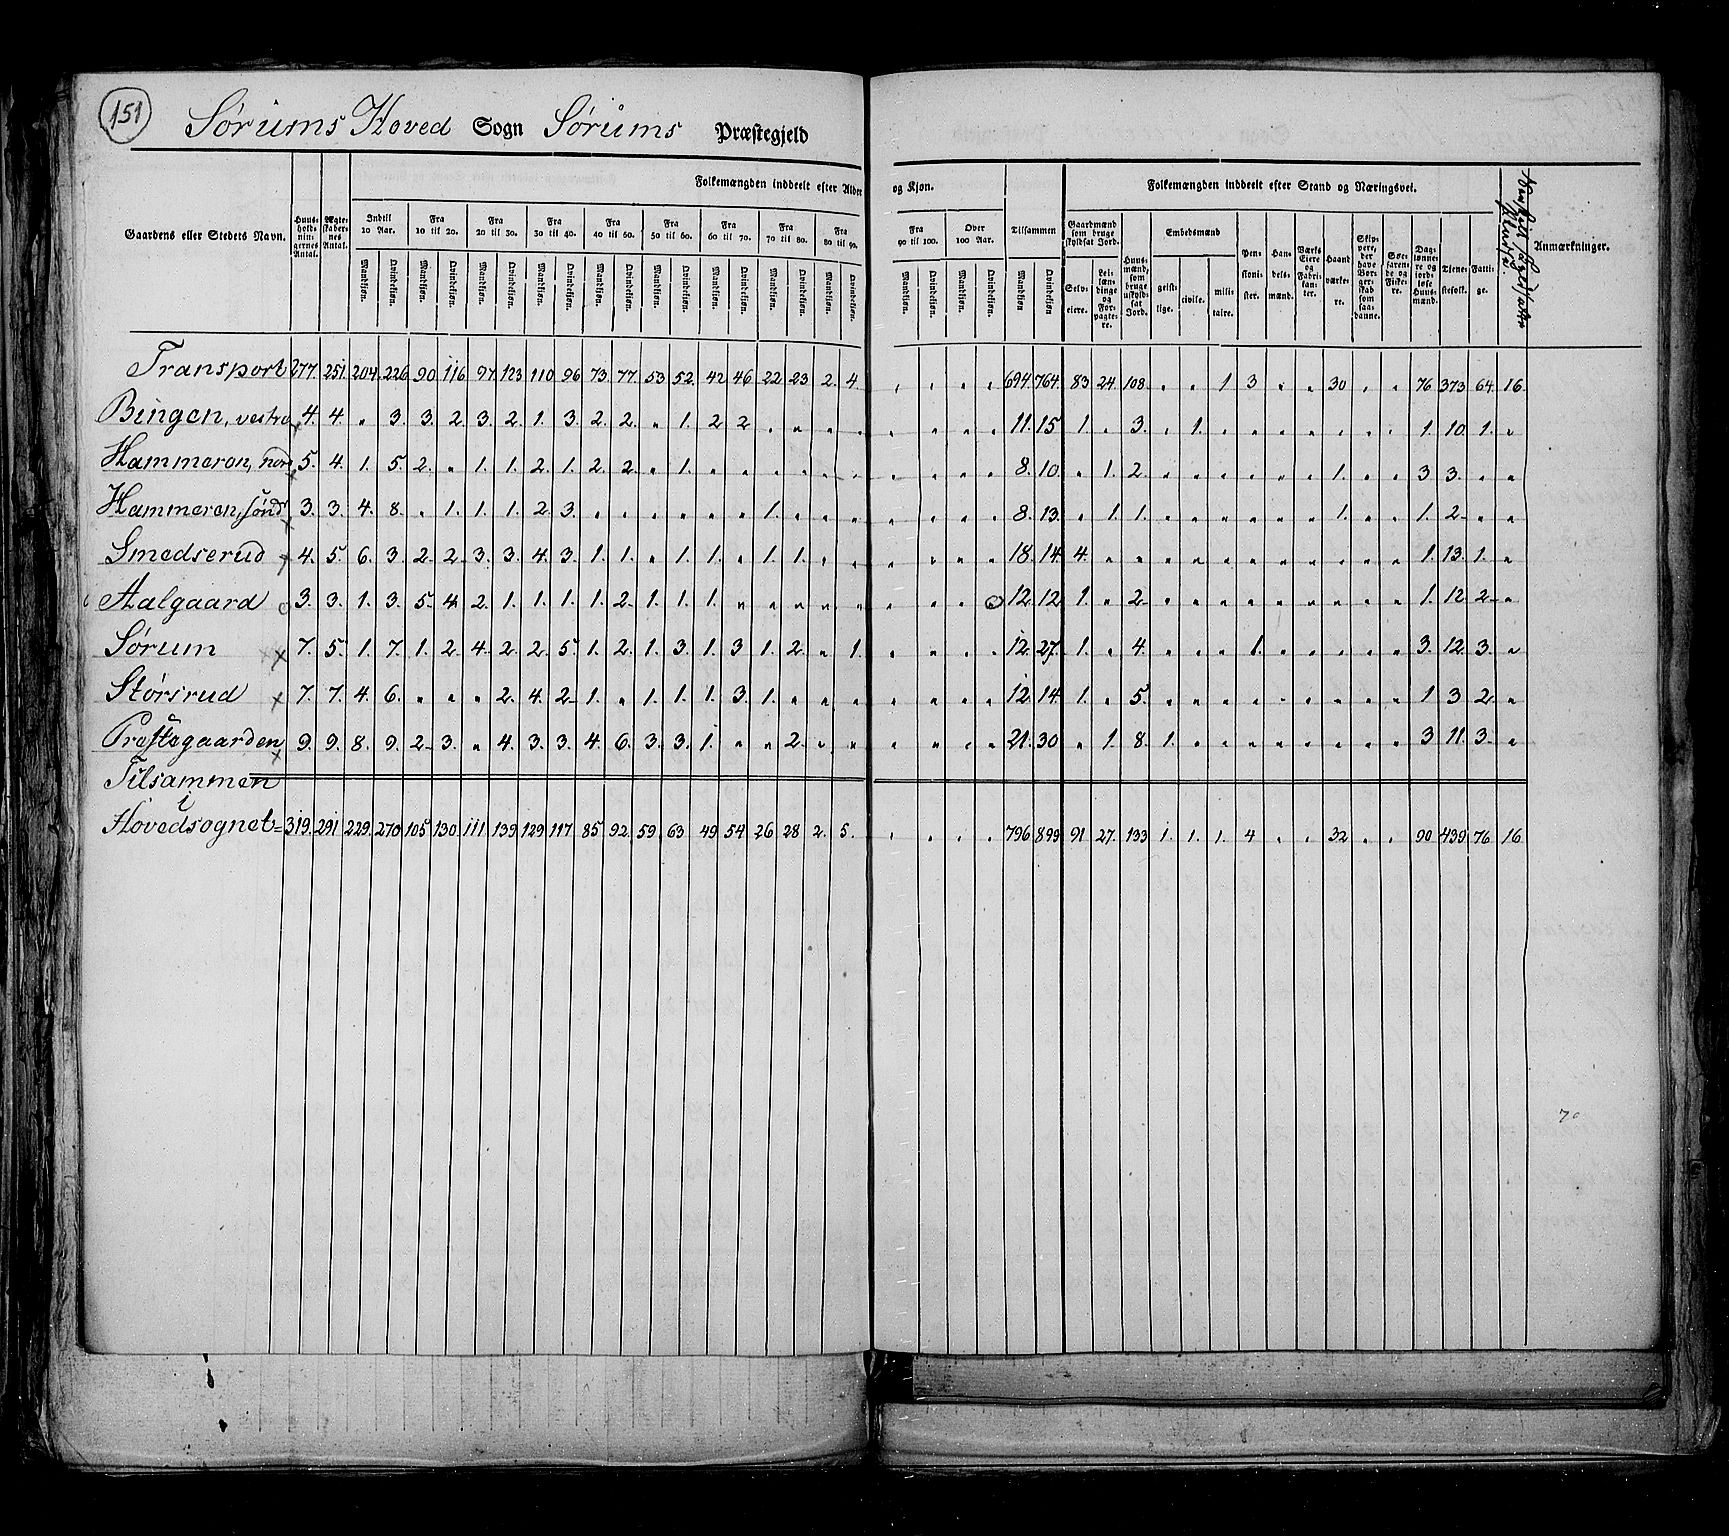 151
Sørums Hoved Sogn Sørums Præstegjeld
Folkemængden inddeelt efter Alder og Kjøn. Tilsammen Folkemængden inddeelt efter Stand og Næringsvei.
Gaardens eller Stedets Navn. Huus-holdningernes Antal. Ægteskabernes Antal. Indtil 10 Aar. Fra 10 til 20. Fra 20 til 30. Fra 30 til 40. Fra 40 til 50. Fra 50 til 60. Fra 60 til 70. Fra 70 til 80. Fra 80 til 90. Fra 90 til 100. Over 100 Aar. Gaardmænd som bruge skyldsat Jord. Selveiere. Leilændinge og Forpagtere. Huusmænd, som bruge uskyldsat Jord. Embedsmænd geistlige. civile. militaire. Pensionister. Handelsmænd. Værks Eiere og Fabrikanter. Haandværkere. Skippere, der have Borgerskab som saadanne. Søefarende og Fiskere. Dagslønnere og jordløse Huusmænd. Tjenestefolk. Fattige. Anmærkninger.
Mandkjøn. Qvindekjøn. Mandkjøn. Qvindekjøn. Mandkjøn. Qvindekjøn. Mandkjøn. Qvindekjøn. Mandkjøn. Qvindekjøn. Mandkjøn. Qvindekjøn. Mandkjøn. Qvindekjøn. Mandkjøn. Qvindekjøn. Mandkjøn. Qvindekjøn. Mandkjøn. Qvindekjøn. Mandkjøn. Qvindekjøn. Mandkjøn. Qvindekjøn.
Transport 277. 251. 204. 226. 90. 116. 97. 123. 110. 96. 73. 77. 53. 52. 42. 46. 22. 23. 2. 4. „ „ „ „ 694. 764. 83 24. 108. „ „ 1. 3 „ „ 30 „ „ 76 373 64. 16.
Bingen, vestre 4. 4. „ 3. 3. 2. 3. 2. 1. 3. 2. 2. „ 1. 2. 2. „ „ „ „ „ „ „ „ 11. 15. 1. „ 3. „ 1. „ „ „ „ „ „ „ 1. 10. 1. „
Hammeren, nord 5. 4. 1. 5. 2. „ 1. 1. 2. 1. 2. 2. „ 1. „ „ „ „ „ „ „ „ „ „ 8. 10. „ 1. 2. „ „ „ „ „ „ 1. „ „ 3 3. „ „
Hammeren, sønd 3. 3. 4. 8. „ 1. 1. 1. 2. 3. „ „ „ „ „ „ 1. „ „ „ „ „ „ „ 8. 13. „ 1. 1. „ „ „ „ „ „ 1. „ „ 1. 2. „ „
Smedserud 4. 5. 6. 3. 2. 2. 3. 3. 4. 3. 1. 1. „ 1. 1. „ 1. 1. „ „ „ „ „ „ 18. 14. 4. „ „ „ „ „ „ „ „ „ „ „ 1. 13. 1. „
Aalgaard 3. 3. 1. 3. 5. 4. 2. 1. 1. 1. 1. 2. 1. 1. 1. „ „ „ „ „ „ „ „ 12. 12. 1. „ 2. „ „ „ „ „ „ „ „ „ 1. 12. 2. „
Sørum 7. 5. 1. 7. 1. 2. 4. 2. 2. 5. 1. 2. 1. 3. 1. 3 1. 2. „ 1. „ „ „ „ 12. 27. 1. „ 4. „ „ „ 1. „ „ „ „ „ 3. 12. 3. „
Størsrud 7. 7. 4. 6. „ „ „ 2. 4. 2. 1. „ 1. 1. 1. 3. 1. „ „ „ „ „ „ „ 12. 14. 1. „ 5. „ „ „ „ „ „ „ „ „ 1. 3 2. „
Præstegaarden 9. 9. 8. 9. 2. 3. „ 4. 3. 3. 4. 6. 3. 3. 1. „ „ 2. „ „ „ „ „ „ 21. 30 „ 1. 8. 1. „ „ „ „ „ „ „ „ 3 11. 3. „
Tilsammen
i
Hovedsognet = 319. 291. 229. 270 105. 130. 111. 139. 129. 117. 85. 92. 59. 63. 49 54. 26 28 2. 5. „ „ „ „ 796. 899 91 27. 133 1. 1. 1. 4 „ „ 32 „ „ 90 439 76 16